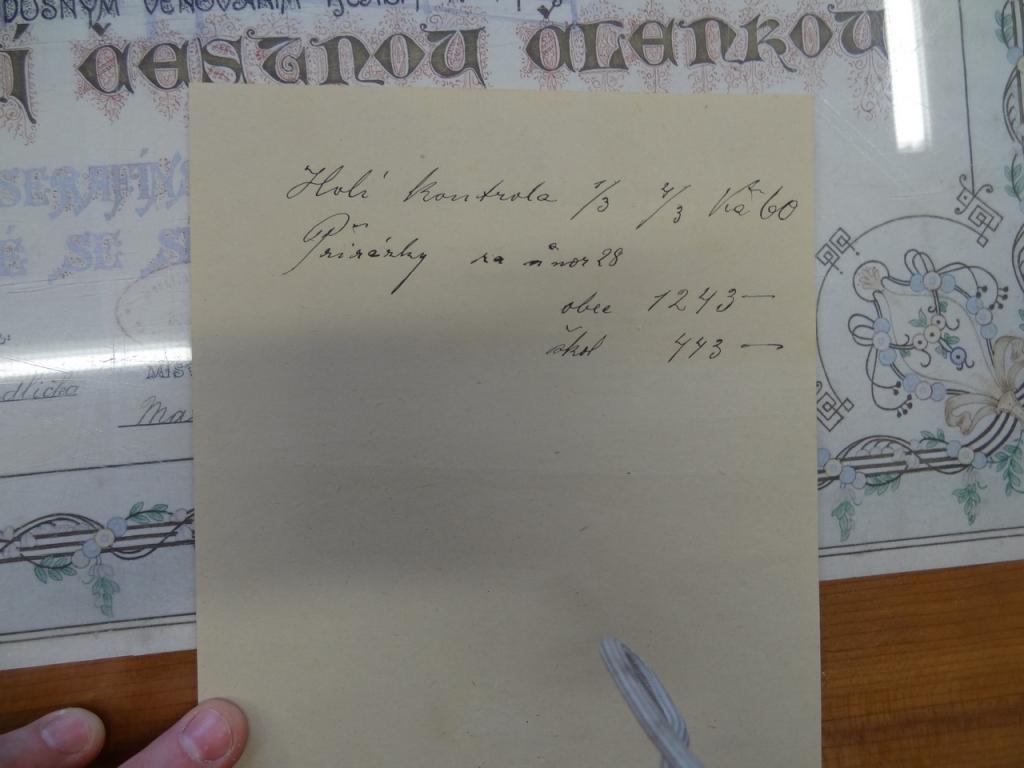 DUŠNÝM VĚNOVÁNÍM
ČESTNOU ČLENKOU
SERAFÍN
É SE S
dlička
MÍST
Ma
Holí kontrola 1/3 4/3 Kč 60
Přirážky za únor 28
obec 1243 —
škol 443 —